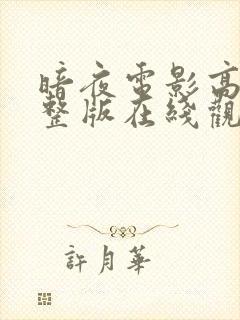 暗夜電影高
整版在綫觀
許月華